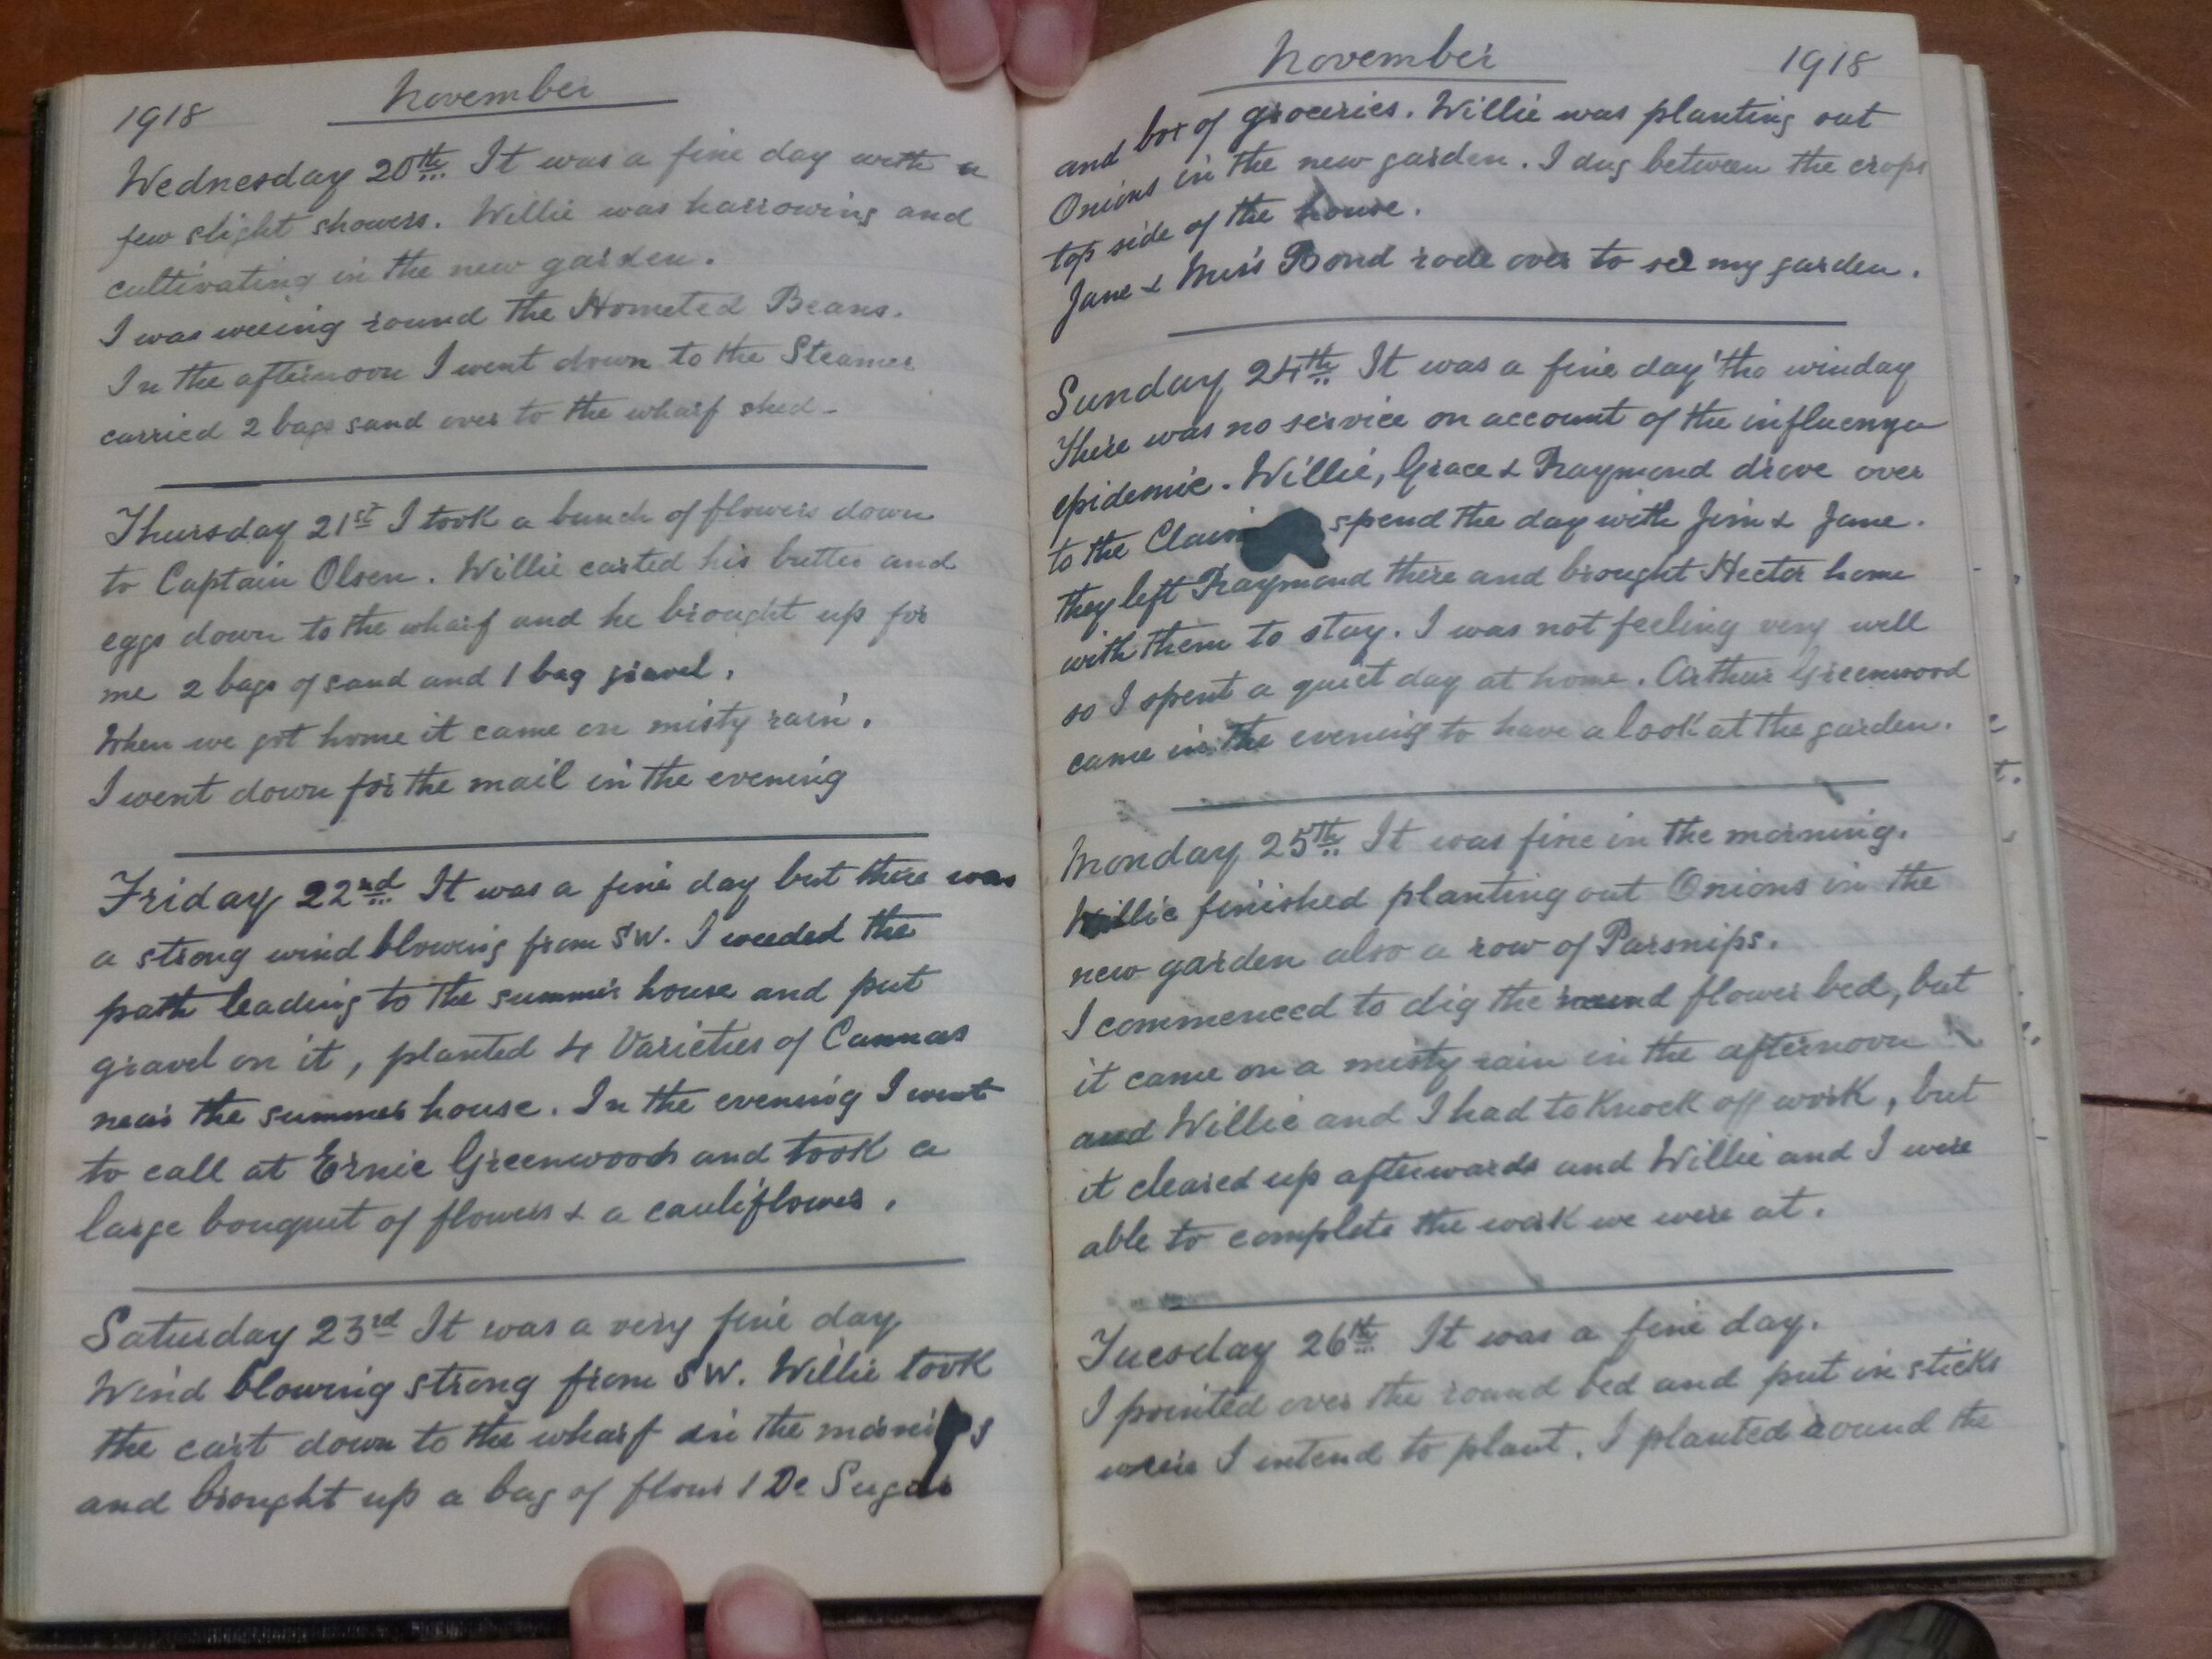 November
1918
Wednesday 20th It was a fine day with a
few slight showers. Willie was harrowing and
cultivating in the new garden.
I was weeing round the Hometed Beans.
In the afternoon I went down to the Steamer
carried 2 bags sand over to the wharf shed.
Thursday 21st I took a bunch of flowers down
to Captain Olsen. Willie carted his butter and
eggs down to the wharf and he brought up for
me 2 bags of sand and 1 bag gravel.
When we got home it came on misty rain.
I went down for the mail in the evening
Friday 22nd It was a fine day but there was
a strong wind blowing from SW. I weeded the
path leading to the summer house and put
gravel on it, planted 4 Varieties of Cannas
near the summer house. In the evening I went
to call at Ernie Greenwoods and took a
large bouquet of flowers & a cauliflower.
Saturday 23rd It was a very fine day
Wind blowing strong from SW. Willie took
the cart down to the wharf in the morning
and brought up a bag of flour 1 Do Sugar
November 1918
and box of groceries. Willie was planting out
Onions in the new garden. I dug between the crops
top side of the house.
Jane & Miss Bond rode over to see my garden.
Sunday 24th It was a fine day 'tho winday
There was no service on account of the influenza
epidemic. Willie, Grace & Raymond drove over
to the Claim spend the day with Jim & Jane.
they left Raymond there and brought Hector home
with them to stay. I was not feeling very well
so I spent a quiet day at home. Arthur Greenwood
came in the evening to have a look at the garden.
Monday 25th It was fine in the morning.
Willie finished planting out Onions in the
new garden also a row of Parsnips.
I commenced to dig the round flower bed, but
it came on a misty rain in the afternoon
and Willie and I had to Knock off work, but
it cleared up afterwards and Willie and I were
able to complete the work we were at.
Tuesday 26th It was a fine day.
I pointed over the round bed and put in sticks
were I intend to plant. I planted around the